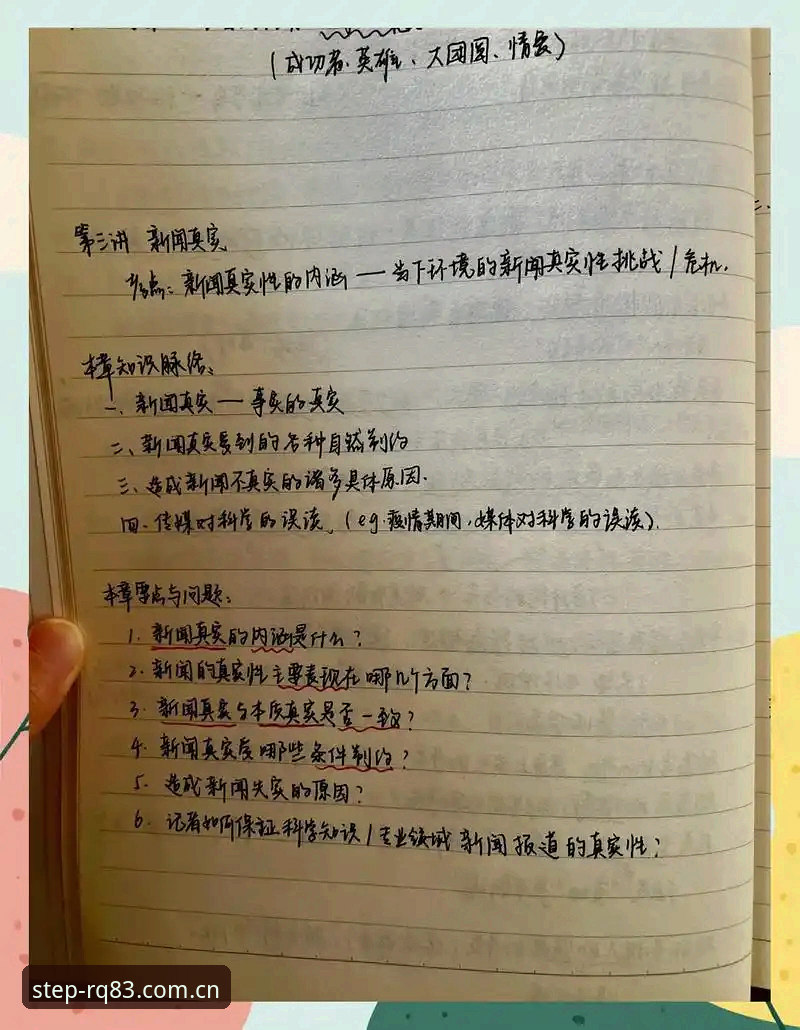 (成功者、英雄、大团圆、情景)
第三讲 新闻真实
考点：新闻真实性的内涵——当下环境的新闻真实性挑战/危机.
本章知识脉络：
一、新闻真实——事实的真实
二、新闻真实受到的各种自然制约
三、造成新闻不真实的诸多具体原因.
四、传媒对科学的误读 (eg.疫情期间,媒体对科学的误读).
本章要点与问题：
1. 新闻真实的内涵是什么?
2. 新闻的真实性主要表现在哪几个方面?
3. 新闻真实与本质真实是否一致?
4. 新闻真实受哪些条件制约?
5. 造成新闻失实的原因?
6. 记者如何保证科学知识/专业领域新闻报道的真实性?
step-rq83.com.cn